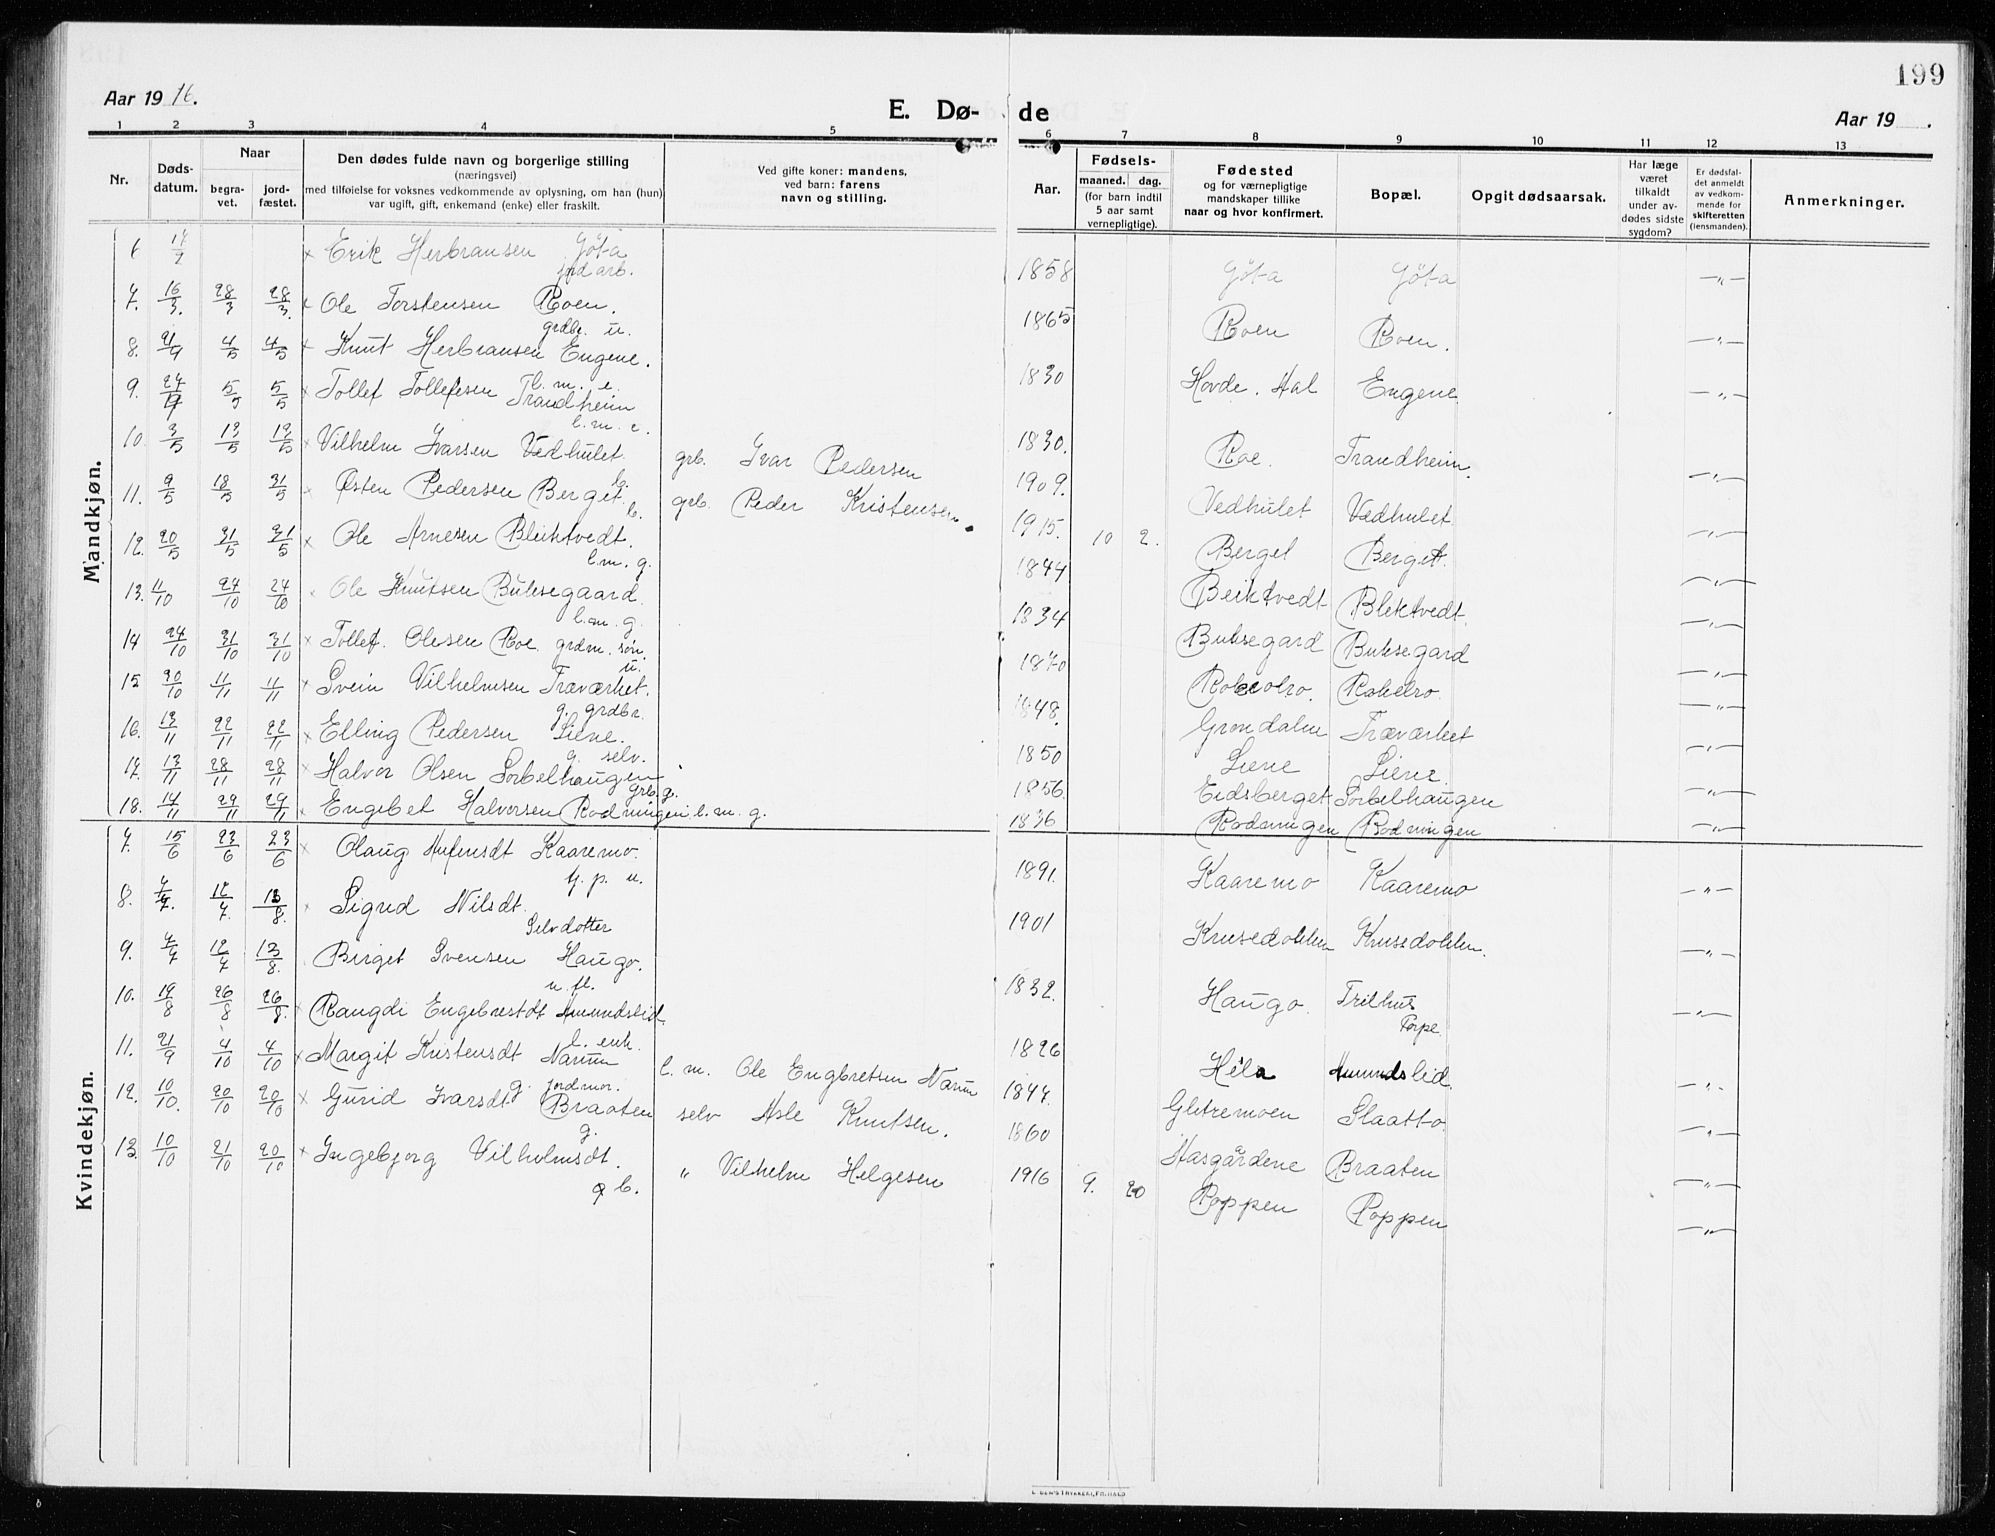 199
Aar 19 16.
E. Dø- de
Aar 19 .
1 2 3 4 5 6 7 8 9 10 11 12 13
Nr.
Døds-
datum.
Naar
begra-
vet.
jord-
fæstet.
Den dødes fulde navn og borgerlige stilling
(næringsvei)
med tilføielse for voksnes vedkommende av oplysning, om han (hun)
var ugift, gift, enkemand (enke) eller fraskilt.
Ved gifte koner: mandens,
ved barn: farens
navn og stilling.
Aar.
Fødsels-
maaned. dag.
(for barn indtil
5 aar samt
vernepligtige).
Fødested
og for værnepligtige
mandskaper tillike
naar og hvor konfirmert.
Bopæl.
Opgit dødsaarsak.
Har læge
været
tilkaldt
under av-
dødes sidste
sygdom?
Er dødsfal-
det anmeldt
av vedkom-
mende for
skifteretten
(lensmanden).
Anmerkninger.
Mandkjøn.
6 × Erik Herbransen Göta 1858 Göta Göta —„—
jord arb.
7. 16/3 28/3 28/3. × Ole Torstensen Roen. 1865 Roen Roen. —„—
grdbr. u.
8. 21/4 4/5 4/5 × Knut Herbransen Engene. 1830 Hovde. Hal Engene —„—
l. m. e.
9. 5/5 5/5 × Tollef Tollefsen Trandheim 1830. Roe. Trandheim —„—
l. m. e.
10. 3/5 13/5 13/5 × Vilhelm Ivarsen Vedhulet grb. Ivar Pedersen 1909. Vedhulet Vedhulet —„—
b.
11. 9/5 18/5 31/5 × Østen Pedersen Berget grb. Peder Kristensen 1915. 10 2. Berget Berget —„—
b.
12. 20/5 31/5 31/5 × Ole Arnesen Bleiktvedt. 1844 Beiktvedt Blektvedt —„—
l. m. g.
13. 11/10 24/10 24/10 × Ole Knutsen Buksegaard 1834 Buksegard Buksegard —„—
l. m. g.
14 24/10 31/10 31/10 × Tollef. Olesen Roe grdm. søn. 1870 —„—
u.
15 20/10 11/11 11/11 × Svein Vilhelmsen Træværket. 1848. Grøndalen Træværket —„—
g. grdbr.
16. 13/11 22/11 22/11 × Elling Pedersen Liene. 1850 Liene Liene —„—
g. selv.
17. 13/11 28/11 28/11 × Halvor Olsen Sorbelhaugen 1856. Eidsberget Sorbelhaugen —„—
grb. g.
18. 14/11 29/11 29/11 × Engebet Halvorsen Rodningen l. m. g. 1836 Rodningen Rodningen —„—
Kvindekjøn.
7. 15/6 23/6 23/6 × Olaug Kaaremo. 1891. Kaaremo Kaaremo —„—
g. p. u.
8. 7/7. 12/7. 13/8. × Sigrid Nilsdt. 1901 Krusedokken Krussedokken. —„—
Selvdotter
9. 7/7 12/7 13/8. Birget Svensen Haugo. 1832. Haugo Trilhus —„—
u. fl. Torpe
10. 19/8 26/8 26/8. × Raugdi Engebrestdt Amundslid. 1826 Héla Amundslid. —„—
l. enk.
11. 21/9 4/10 4/10 × Margit Kristensdt Narum l. m. Ole Engbretsen Narum 1844. Gletremoen Slaatto —„—
g. jordmor.
12. 10/10. 20/10 20/10 × Gurid Ivarsdt. Braaten selv Asle Knutsen. 1860 Aasgårdene Braaten —„—
g.
13. 10/10 21/10 20/10 × Ingebjorg Vilholmsdt. „ Vilhelm Helgesen 1916 9. 20 Poppen Poppen —„—
b.